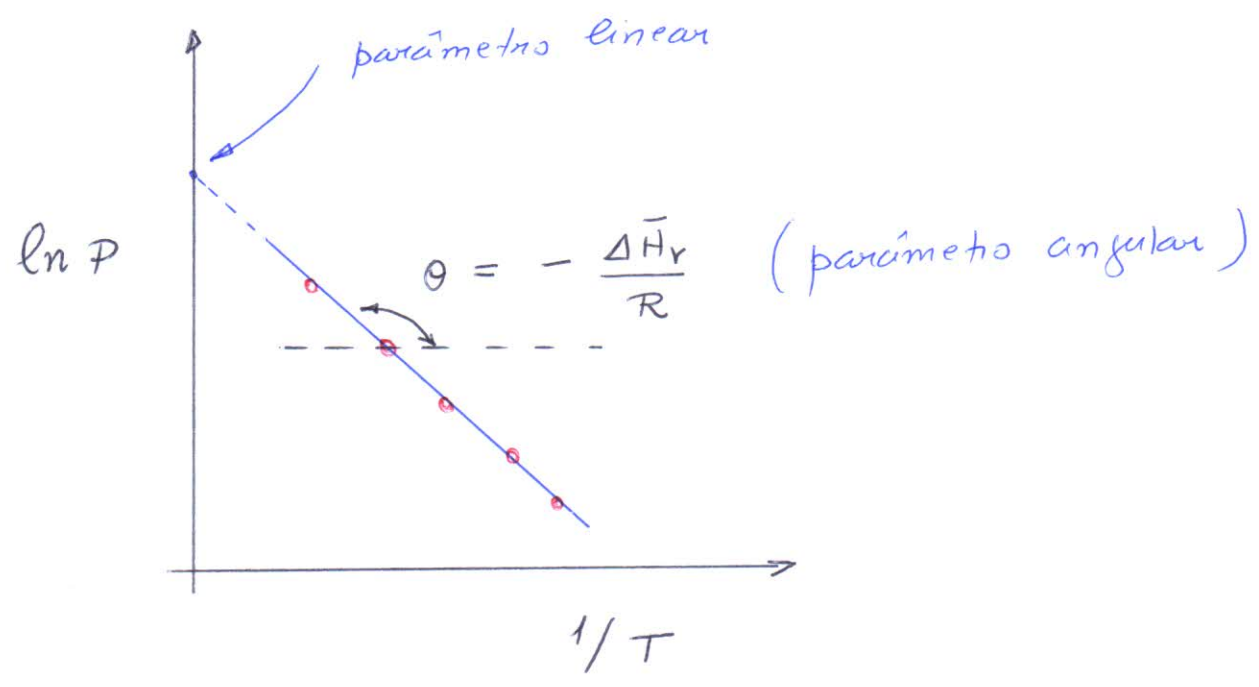 parâmetro linear
ln P
θ = - ΔH̄v / R (parâmetro angular)
1/T